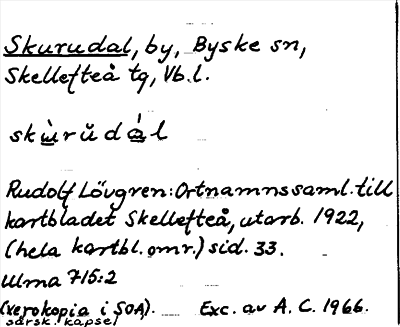 Skurudal, by, Byske sn,
Skellefteå tg, Vb.l.
skùrŭdál
Rudolf Lövgren: Ortnamnssaml. till
kartbladet Skellefteå, utarb. 1922,
(hela kartbl. omr.) sid. 33.
Ulma 715:2
(xerokopia i SOA). Exc. av A. C. 1966.
särsk. kapsel